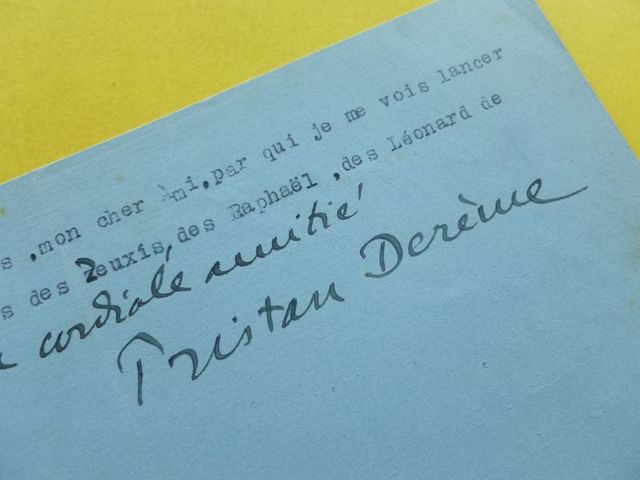 s ,mon cher Ami,par qui je me vois lancer
s des Zeuxis,des Raphaël ,des Léonard de
cordiale amitié
Tristan Derème